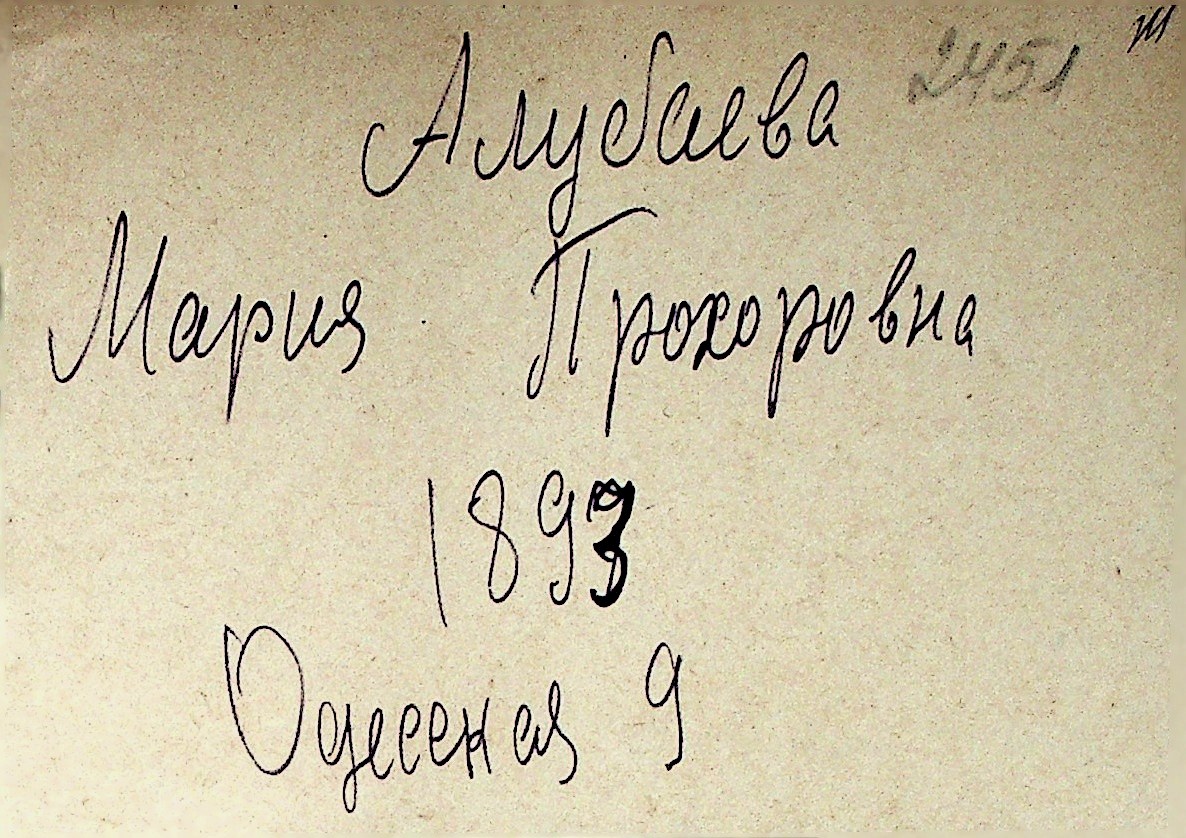 2451 ж
Алубаева
Мария Прохоровна
1893
Одесская 9